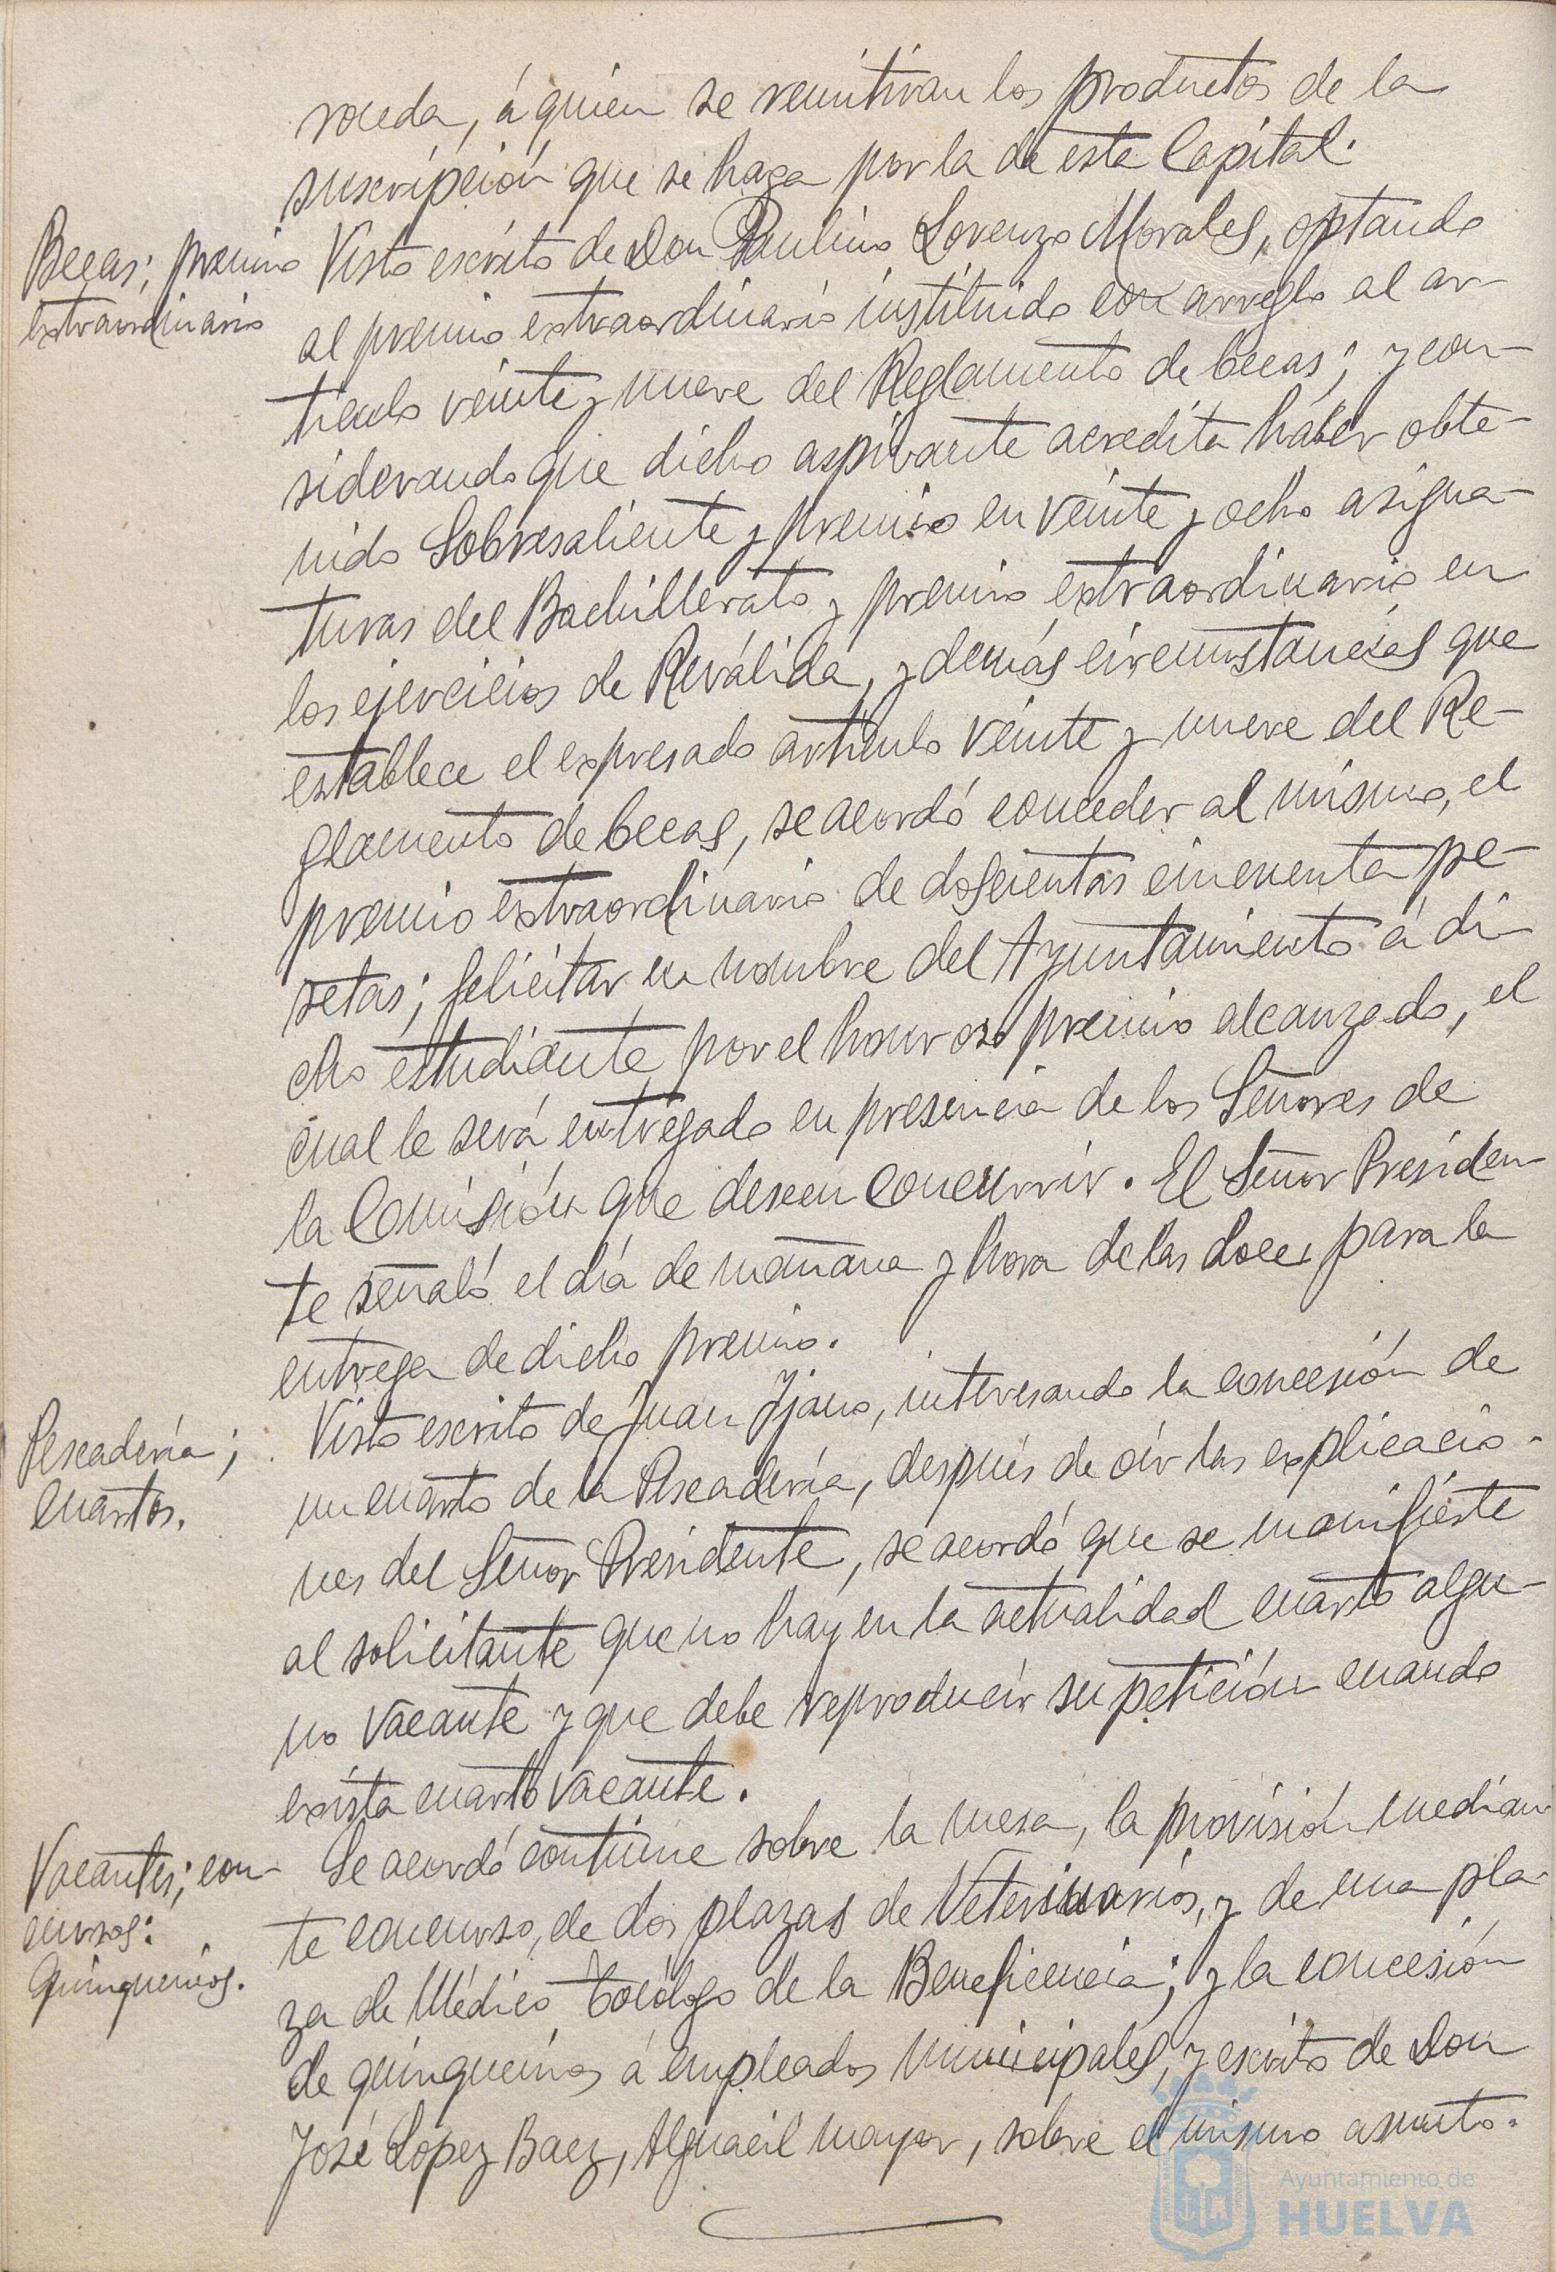 roneda, á quien se remitiran los productos de la
suscripción que se haga por la de esta Capital.
Becas; premio
extraordinario
Visto escrito de Don Paulino Lorenzo Morales, optando
al premio extraordinario instituido con arreglo al ar-
tículo veinte y nueve del Reglamento de becas; y con-
siderando que dicho aspirante acredita haber obte-
nido Sobresaliente y premio en veinte y ocho asigna-
turas del Bachillerato y premio extraordinario en
los ejercicios de Reválida, y demás circunstancias que
establece el expresado artículo veinte y nueve del Re-
glamento de becas, se acordó conceder al mismo, el
premio extraordinario de doscientas cincuenta pe-
setas; felicitar en nombre del Ayuntamiento á di-
cho estudiante por el honroso premio alcanzado, el
cual le será entregado en presencia de los Señores de
la Comisión que deseen concurrir. El Señor Presiden-
te señaló el día de mañana y hora de las doce, para la
entrega de dicho premio.
Pescadería;
cuartos.
Visto escrito de Juan Ijano, interesando la concesión de
un cuarto de la Pescadería, después de oir las explicacio-
nes del Señor Presidente, se acordó que se manifieste
al solicitante que no hay en la actualidad cuarto algu-
no vacante y que debe reproducir su petición cuando
exista cuarto vacante.
Vacantes; con-
cursos:
Quinquenios.
Se acordó continúe sobre la mesa, la provisión median-
te concurso, de dos plazas de Veterinarios, y de una pla-
za de Médico Tocólogo de la Beneficencia; y la concesión
de quinquenios á empleados municipales, y escrito de Don
José López Baez, Alguacil mayor, sobre el mismo asunto.
Ayuntamiento de
HUELVA